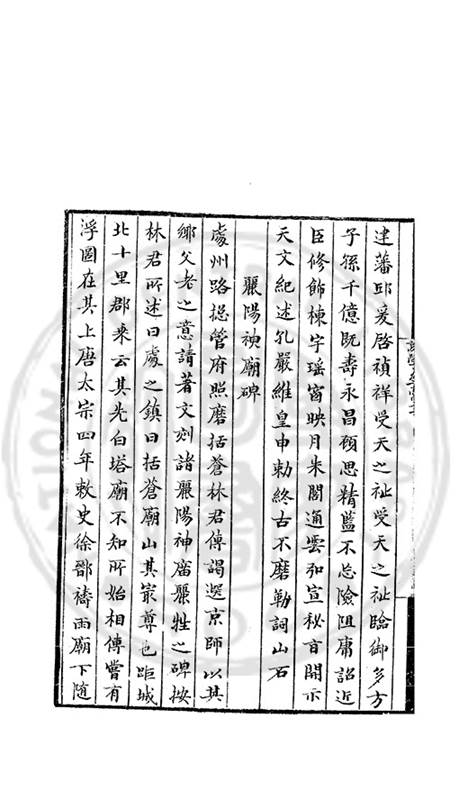 建藩邸爰啓禎祥受天之祉受天之祉臨御多方
子孫千億既壽永昌顧思精藍不忘險阻庸詔近
臣修飾棟宇瑤窗映月朱閣通雲和宣秘旨開示
天文紀述孔嚴維皇申勅終古不磨勒詞山石
麗陽神廟碑
處州路總管府照磨括蒼林君傳謁選京師以其
鄉父老之意請著文刻諸麗陽神廟麗牲之碑按
林君所述曰處之鎮曰括蒼廟山其最尊也距城
北十里郡乘云其先白塔廟不知所始相傳嘗有
浮圖在其上唐太宗四年敕史徐鄑禱雨廟下隨